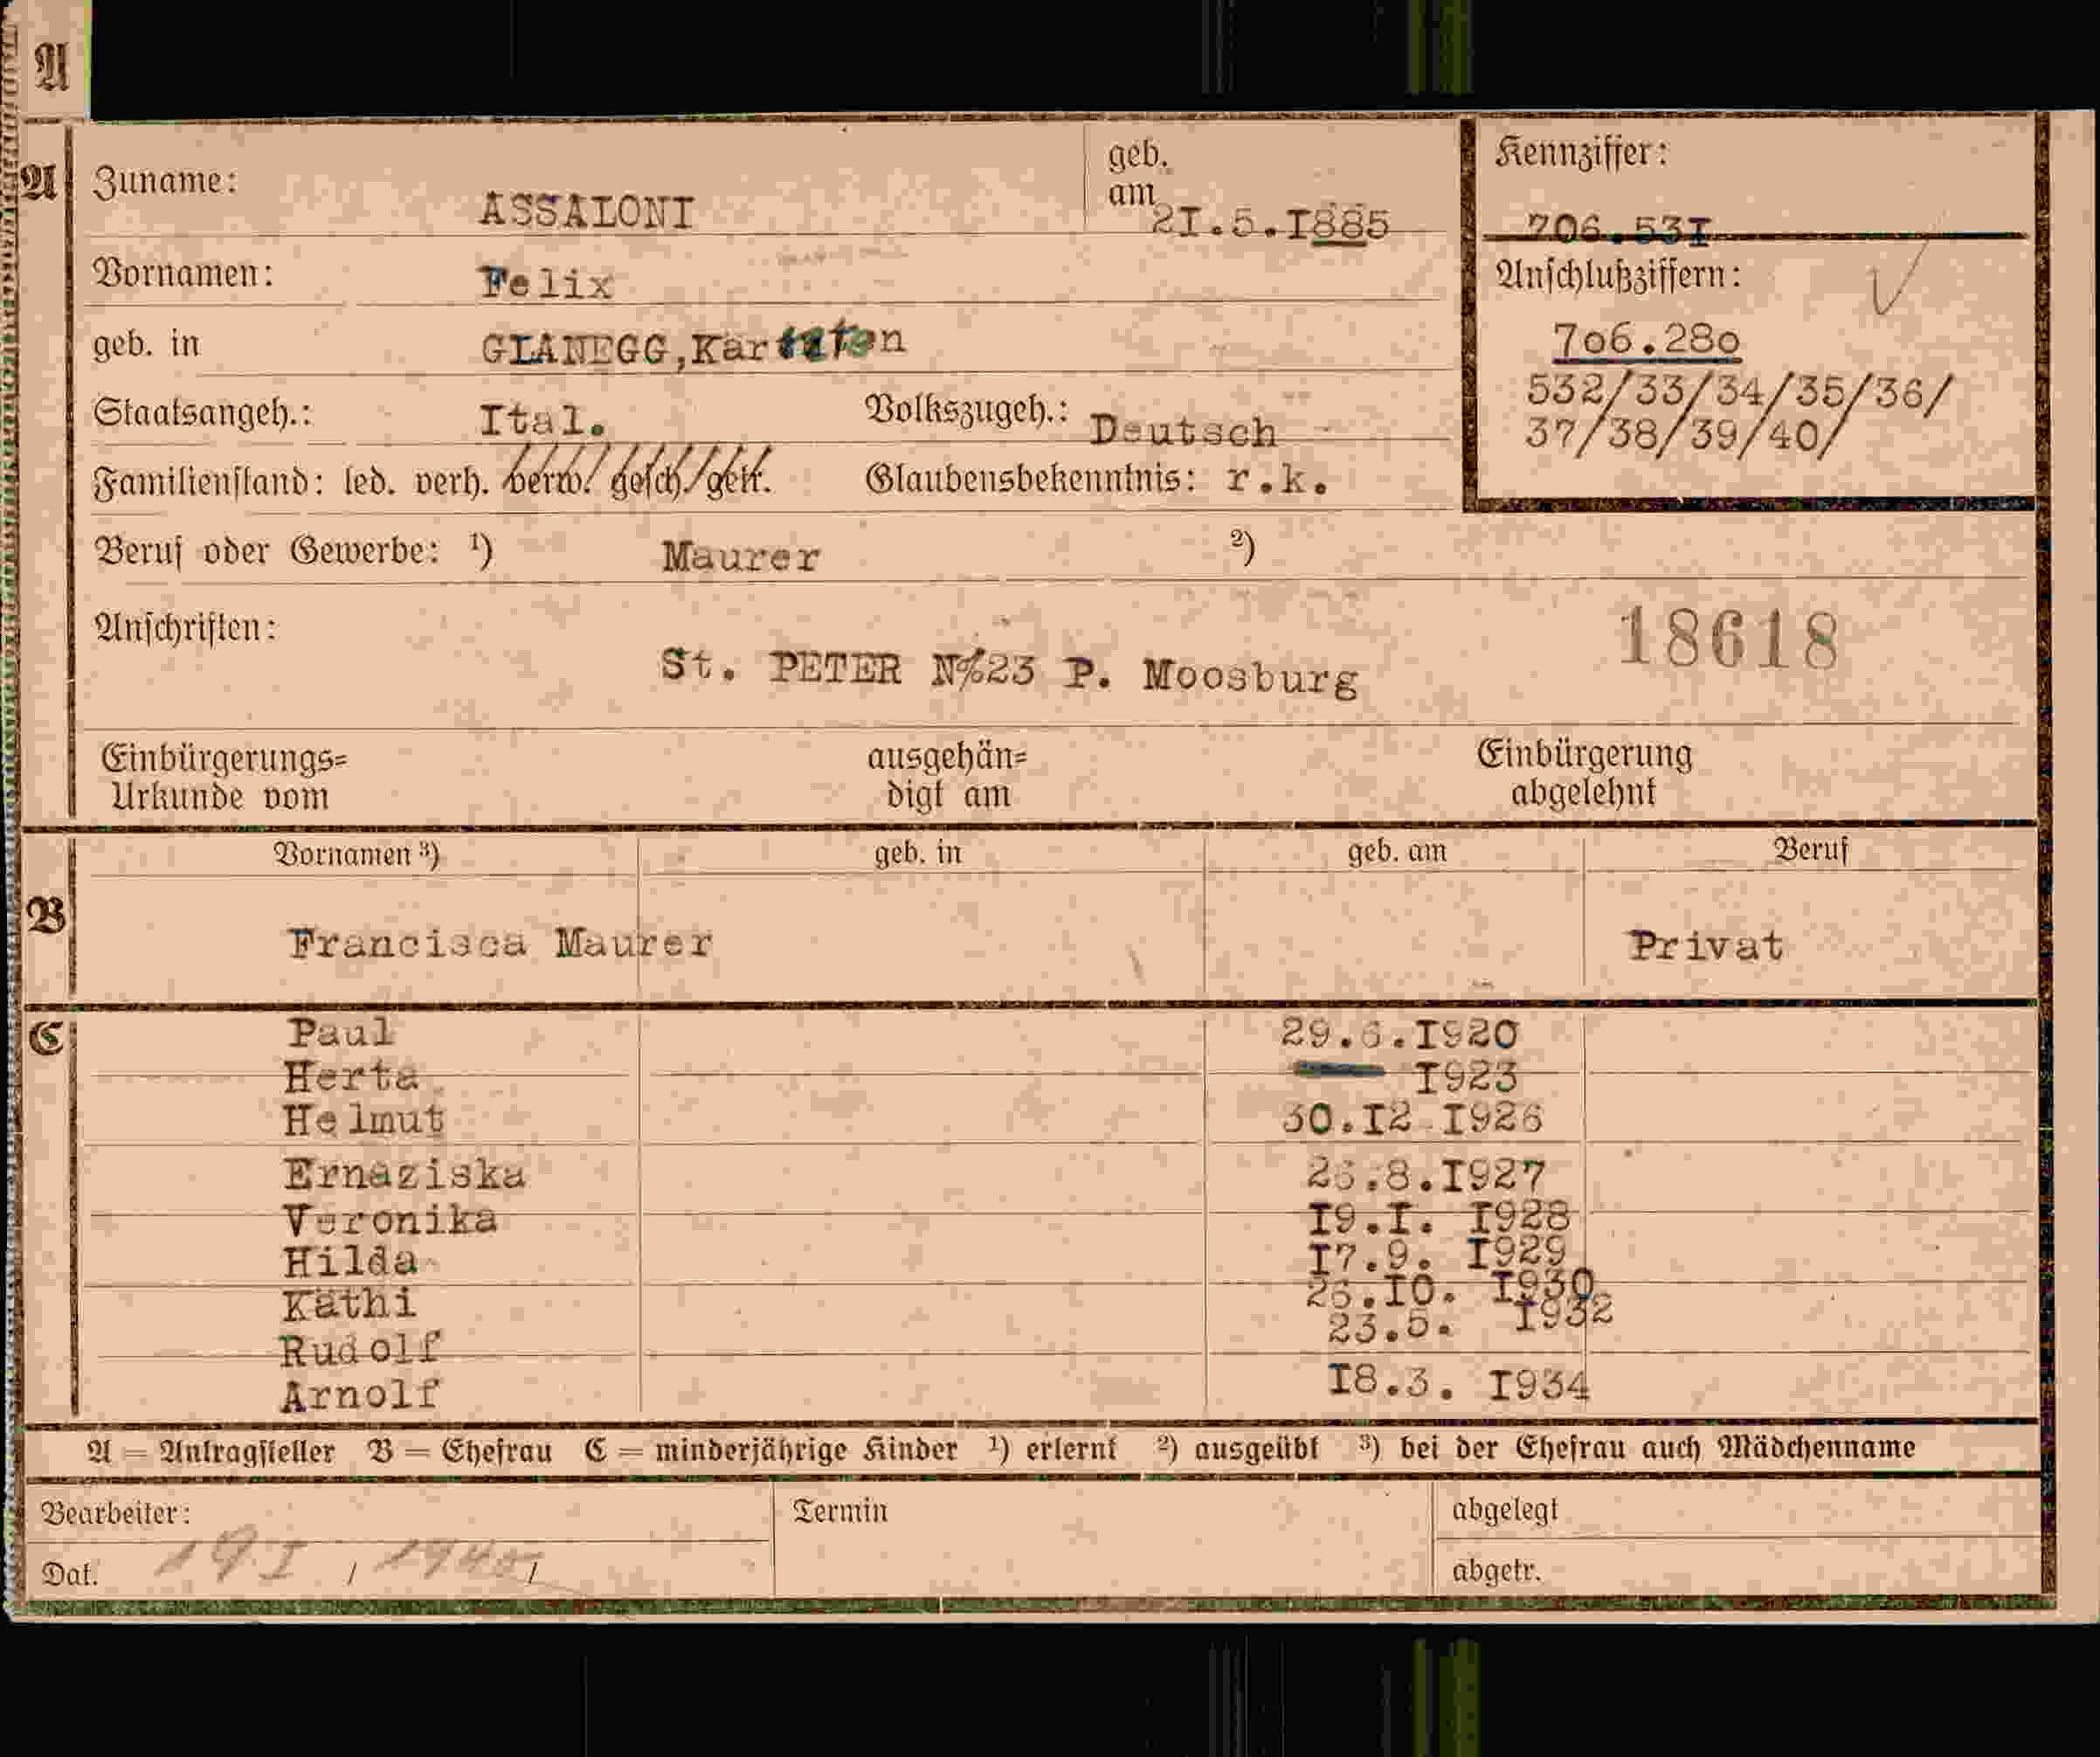 A
A
Zuname: ASSALONI geb. am 2I.5.I885
Kennziffer:
706.53I
Vornamen: Felix
Anschlußziffern:
geb. in GLANEGG,Kärnten
7o6.28o
532/33/34/35/36/
37/38/39/40/
Staatsangeh.: Ital. Volkszugeh.: Deutsch
Familienstand: led. verh. verw. gesch. getr. Glaubensbekenntnis: r.k.
Beruf oder Gewerbe: ¹) Maurer ²)
Anschriften:
18618
St. PETER N%23 P. Moosburg
Einbürgerungs= ausgehän= Einbürgerung
Urkunde vom digt am abgelehnt
Vornamen ³) geb. in geb. am Beruf
B
Francisca Maurer Privat
C
Paul 29.6.I920
Herta I923
Helmut 30.I2 I926
Ernaziska 26.8.I927
Veronika I9.I. I928
Hilda I7.9. I929
Käthi 26.I0. I930
Rudolf 23.5. I932
Arnolf I8.3. I934
A = Antragsteller B = Ehefrau C = minderjährige Kinder ¹) erlernt ²) ausgeübt ³) bei der Ehefrau auch Mädchenname
Bearbeiter: Termin abgelegt
Dat. 19 I / 1940 / abgetr.